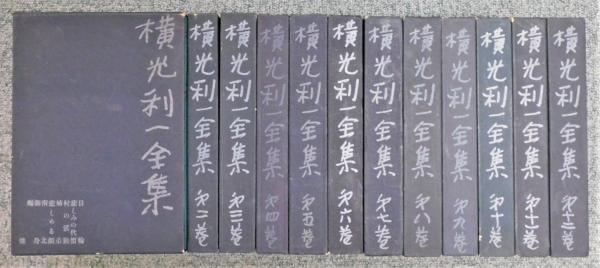 横光利一全集
日輪
悲しみの代價
村の活動
姉弟
悲しめる顔
南北
御身
蠅 他
横光利一全集 第二巻
横光利一全集 第三巻
横光利一全集 第四巻
横光利一全集 第五巻
横光利一全集 第六巻
横光利一全集 第七巻
横光利一全集 第八巻
横光利一全集 第九巻
横光利一全集 第十巻
横光利一全集 第十一巻
横光利一全集 第十二巻